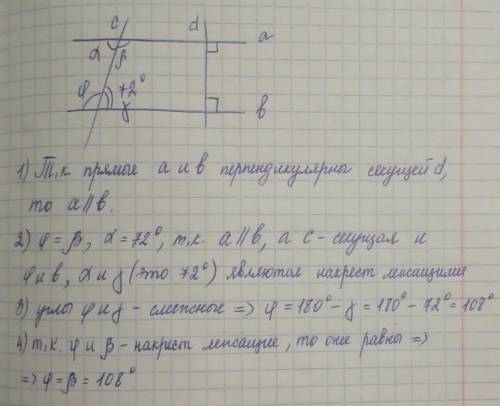 c d a
α β
φ 72° γ b
1) Т.к. прямые a и b перпендикулярны секущей d,
то a∥b.
2) φ = β, α = 72°, т.к. a∥b, a c - секущая и
φ и b, α и γ (это 72°) являются накрест лежащими
3) углы φ и γ - смежные => φ = 180° - γ = 180° - 72° = 108°
4) т.к. φ и β - накрест лежащие, то они равны =>
=> φ = β = 108°